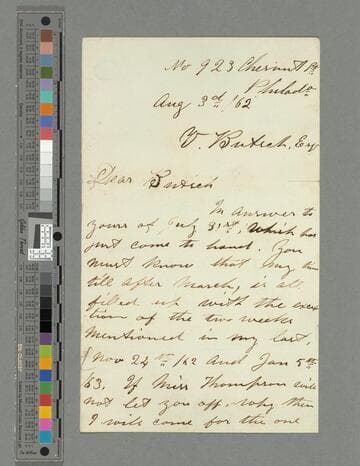 No 923 Chesnut St
Philada
Aug 3rd /62
V. Butsch, Esq
Dear Butsch
In answer to
yours of July 31st, which has
just come to hand. You
must know that my time
till after March, is all
filled up with the excep
tion of the two weeks
mentioned in my last,
Nov 24th /62 and Jan 5th
/63. If Miss Thompson will
not let you off, why then
I will come for the one